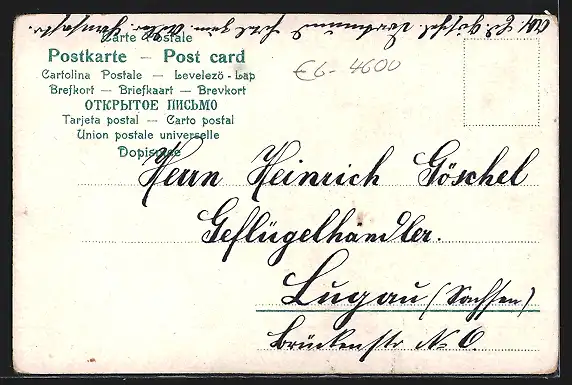 Carte Postale
Postkarte — Post card
Cartolina Postale — Levelező-Lap
Brefkort — Briefkaart — Brevkort
ОТКРЫТОЕ ПИСЬМО
Tarjeta postal — Carto postal
Union postale universelle
Dopisnice
€6.- 4600
Herrn Heinrich Göschel
Geflügelhändler.
Lugau (Sachsen)
Brückenstr No 6.